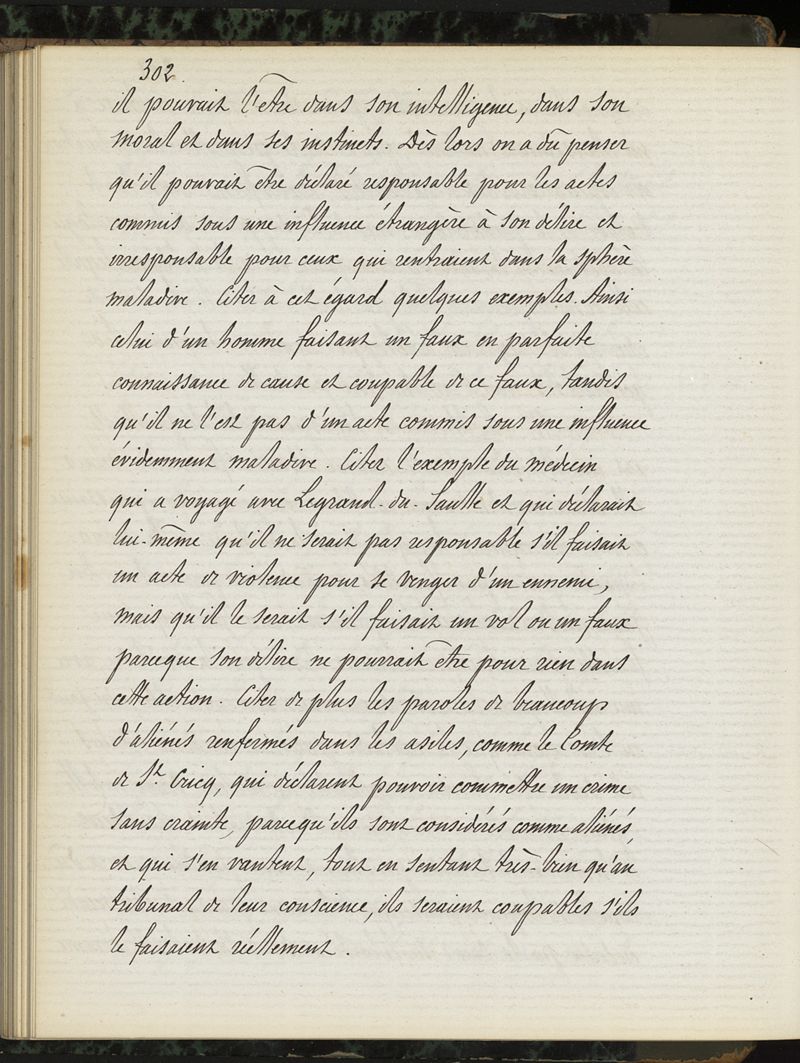 302.
il pouvait l'être dans son intelligence, dans son
moral et dans ses instincts. Dès lors on a dû penser
qu'il pouvait être déclaré responsable pour les actes
commis sous une influence étrangère à son délire et
irresponsable pour ceux qui rentraient dans la sphère
maladive. Citer à cet égard quelques exemples. Ainsi
celui d'un homme faisant un faux en parfaite
connaissance de cause et coupable de ce faux, tandis
qu'il ne l'est pas d'un acte commis sous une influence
évidemment maladive. Citer l'exemple du médecin
qui a voyagé avec Legrand-du-Saulle et qui déclarait
lui-même qu'il ne serait pas responsable s'il faisait
un acte de violence pour se venger d'un ennemi,
mais qu'il le serait s'il faisait un vol ou un faux
parceque son délire ne pourrait être pour rien dans
cette action. Citer de plus les paroles de beaucoup
d'aliénés renfermés dans les asiles, comme le Comte
de St. Cricq, qui déclarent pouvoir commettre un crime
sans crainte, parcequ'ils sont considérés comme aliénés,
et qui s'en vantent, tout en sentant très-bien qu'au
tribunal de leur conscience, ils seraient coupables s'ils
le faisaient réellement.